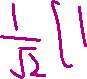 \frac{1}{\sqrt{2}} \int 1